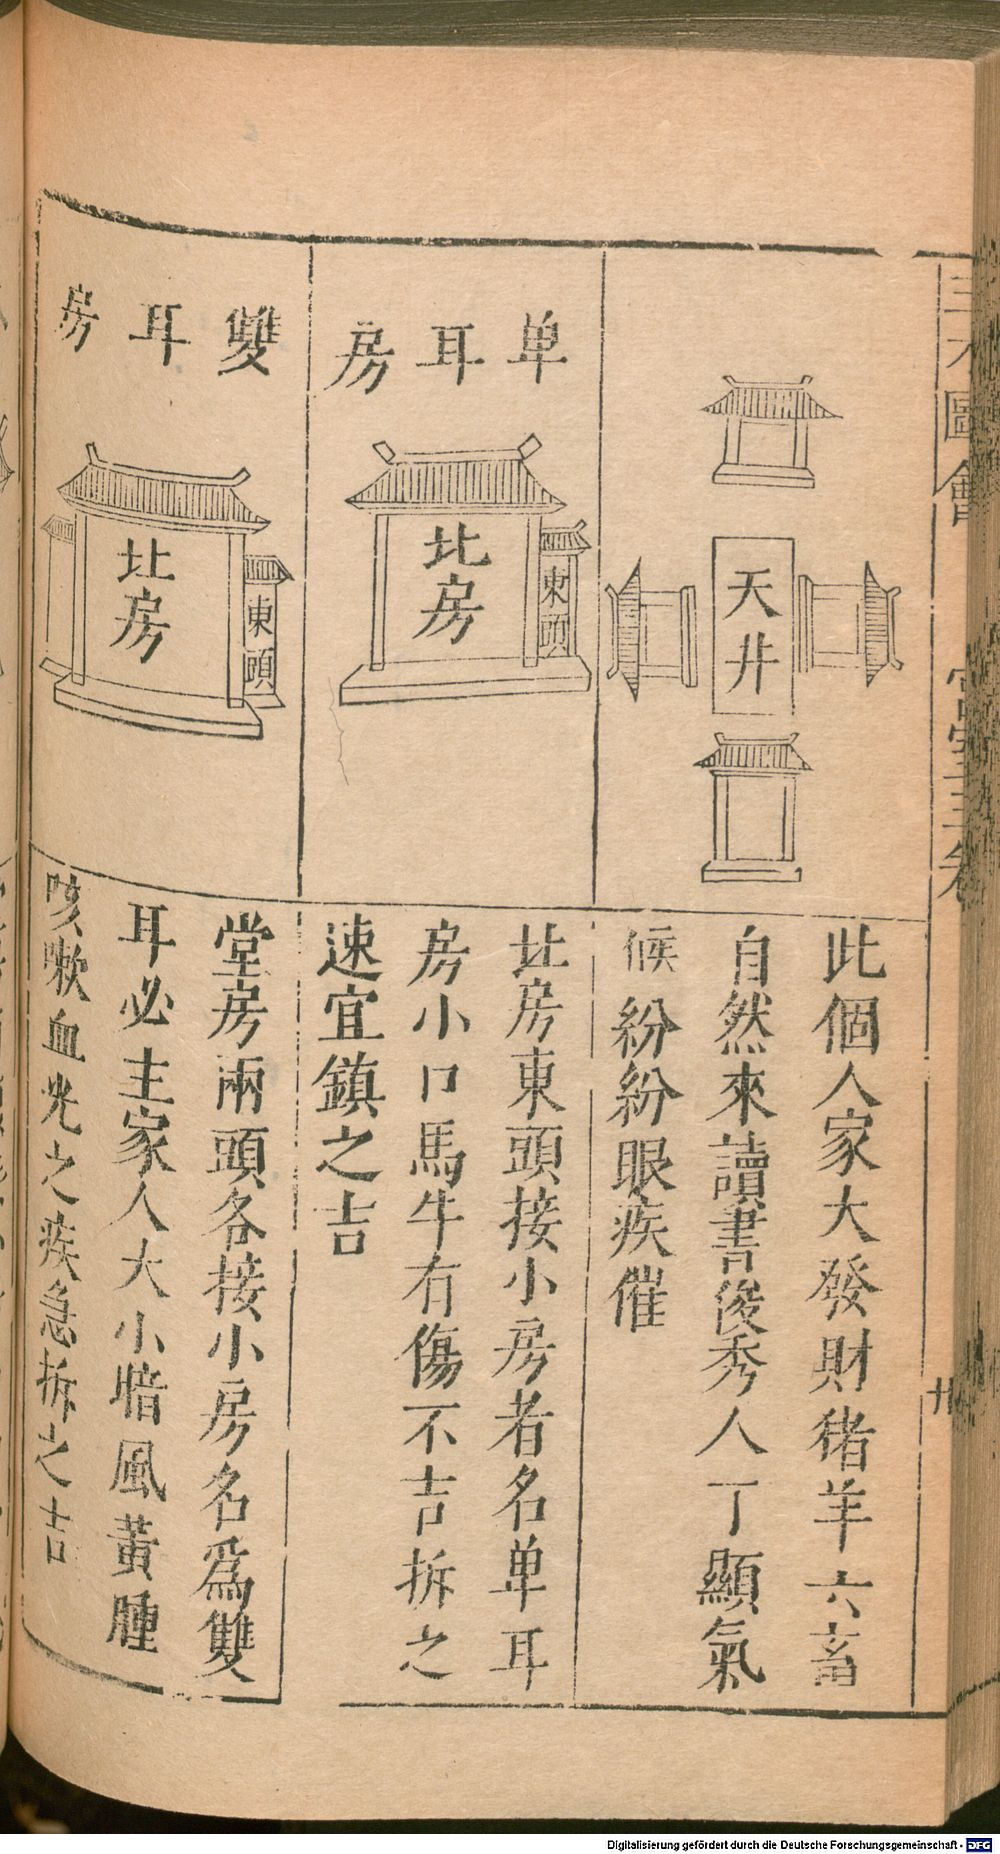 三才圖會
宮室三卷
廿
天井
此個人家大發財猪羊六畜
自然來讀書俊秀人丁顯氣
候紛紛眼疾催
单耳房
北房
東頭
北房東頭接小房者名单耳
房小口馬牛有傷不吉拆之
速宜鎮之吉
雙耳房
北房
東頭
堂房兩頭各接小房名爲雙
耳必主家人大小暗風黃腫
咳嗽血光之疾急拆之吉
Digitalisierung gefördert durch die Deutsche Forschungsgemeinschaft - DFG